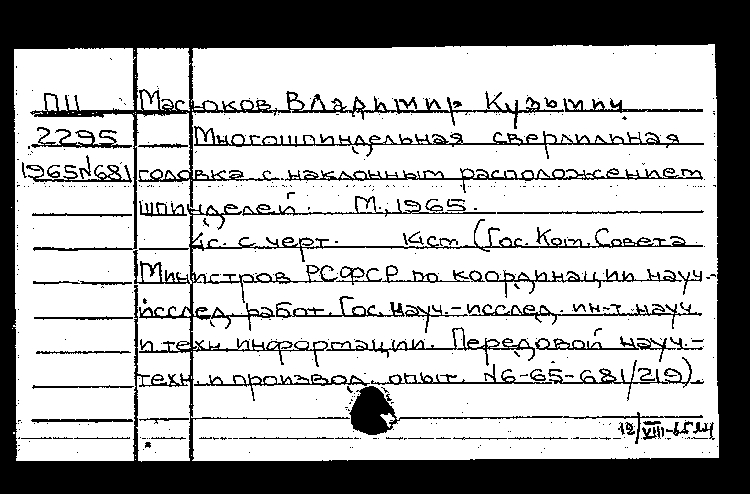 П11 Масюков, Владимир Кузьмич.
2295 Многошпиндельная сверлильная
1965№681 головка с наклонным расположением
шпинделей. М., 1965.
4с. с черт. (Гос. Ком. Совета
Министров РСФСР по координации науч.-
исслед. работ. Гос. науч.-исслед. ин-т науч.
и техн. информации. Передовой науч.-
техн. и производ. опыт. №6-65-681/219).